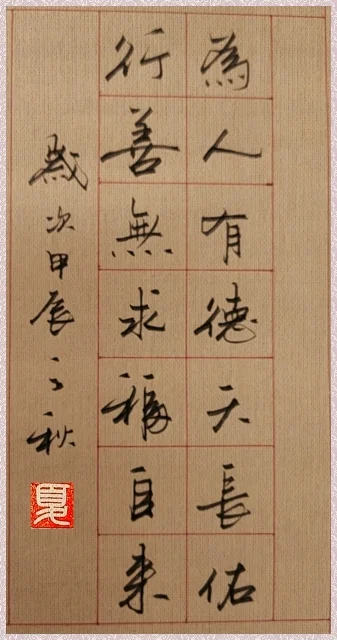 為人有德天長佑
行善無求福自来
歲次甲辰之秋